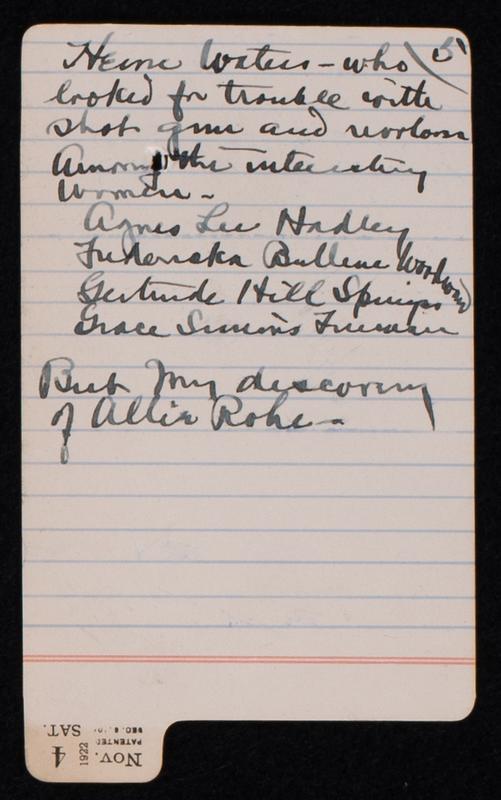 5
Waters - who
looked for trouble with
shot gun and
Among the interesting
women -
Agnes Lee Hadley
Frederika Bullene Woodward
Gertrude Hill Springer
Grace Simons
But my discovery
of Allie Rohe -
Nov. 4 SAT.
1922
PATENTED